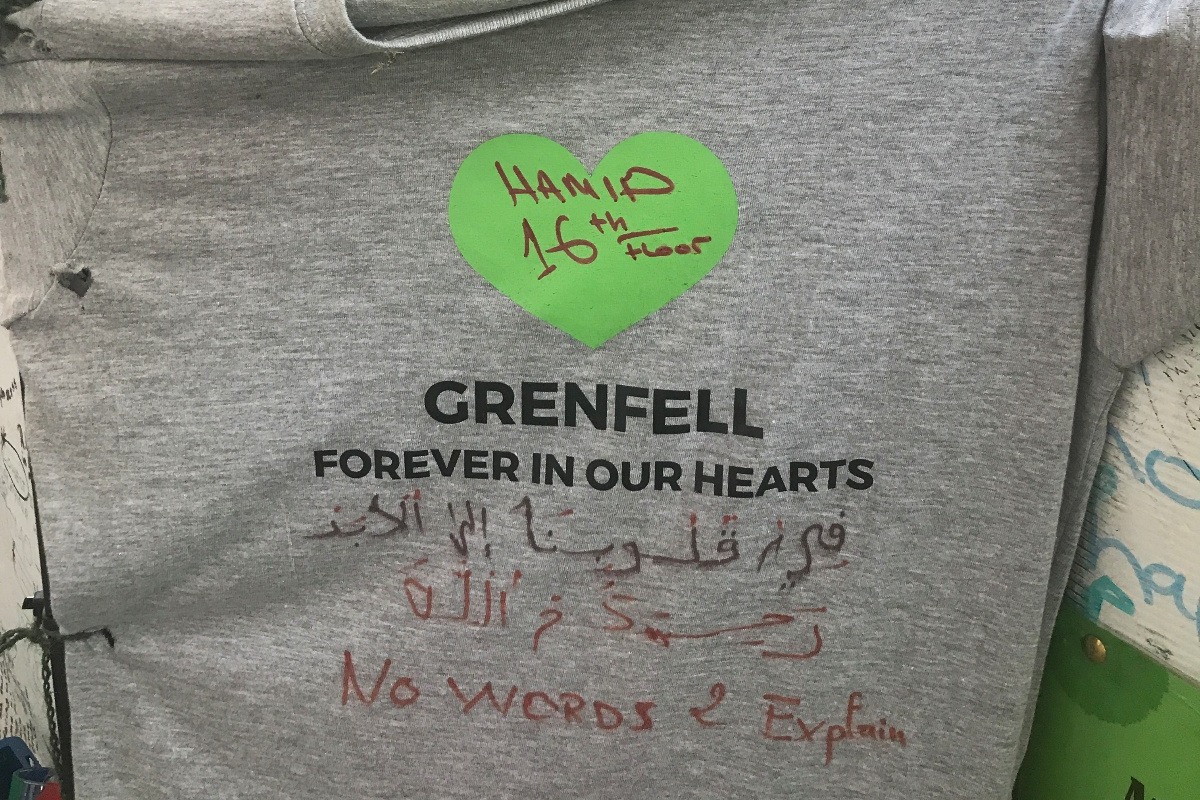 HAMID
16th floor
GRENFELL
FOREVER IN OUR HEARTS
في قلوبنا إلى الأبد
رحمكم الله
No WORDS 2 Explain